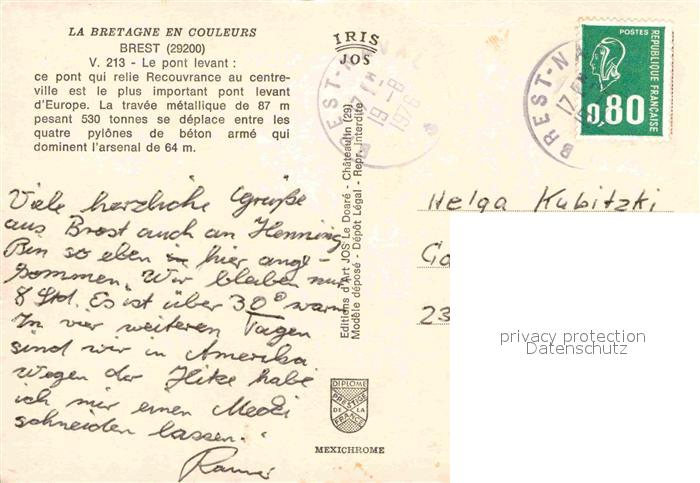 LA BRETAGNE EN COULEURS
BREST (29200)
V. 213 - Le pont levant :
ce pont qui relie Recouvrance au centre-
ville est le plus important pont levant
d'Europe. La travée métallique de 87 m
pesant 530 tonnes se déplace entre les
quatre pylônes de béton armé qui
dominent l'arsenal de 64 m.
Viele herzliche Grüße
aus Brest auch an Henning
Bin so eben hier ange-
kommen. Wir bleiben nur
8 Std. Es ist über 30° warm
In vier weiteren Tagen
sind wir in Amerika
Wegen der Hitze habe
ich mir einen Mecki
schneiden lassen.
Rainer
IRIS
JOS
Editions d'Art JOS Le Doaré - Châteaulin (29)
Modèle déposé - Dépôt Légal - Repr. Interdite
DIPLOME
PRESTIGE
DE LA
FRANCE
MEXICHROME
BREST-NAVAL
17 H
19-8
1976
BREST-NA
17 H
POSTES
REPUBLIQUE FRANÇAISE
0,80
Helga Kubitzki
Go
23
privacy protection
Datenschutz